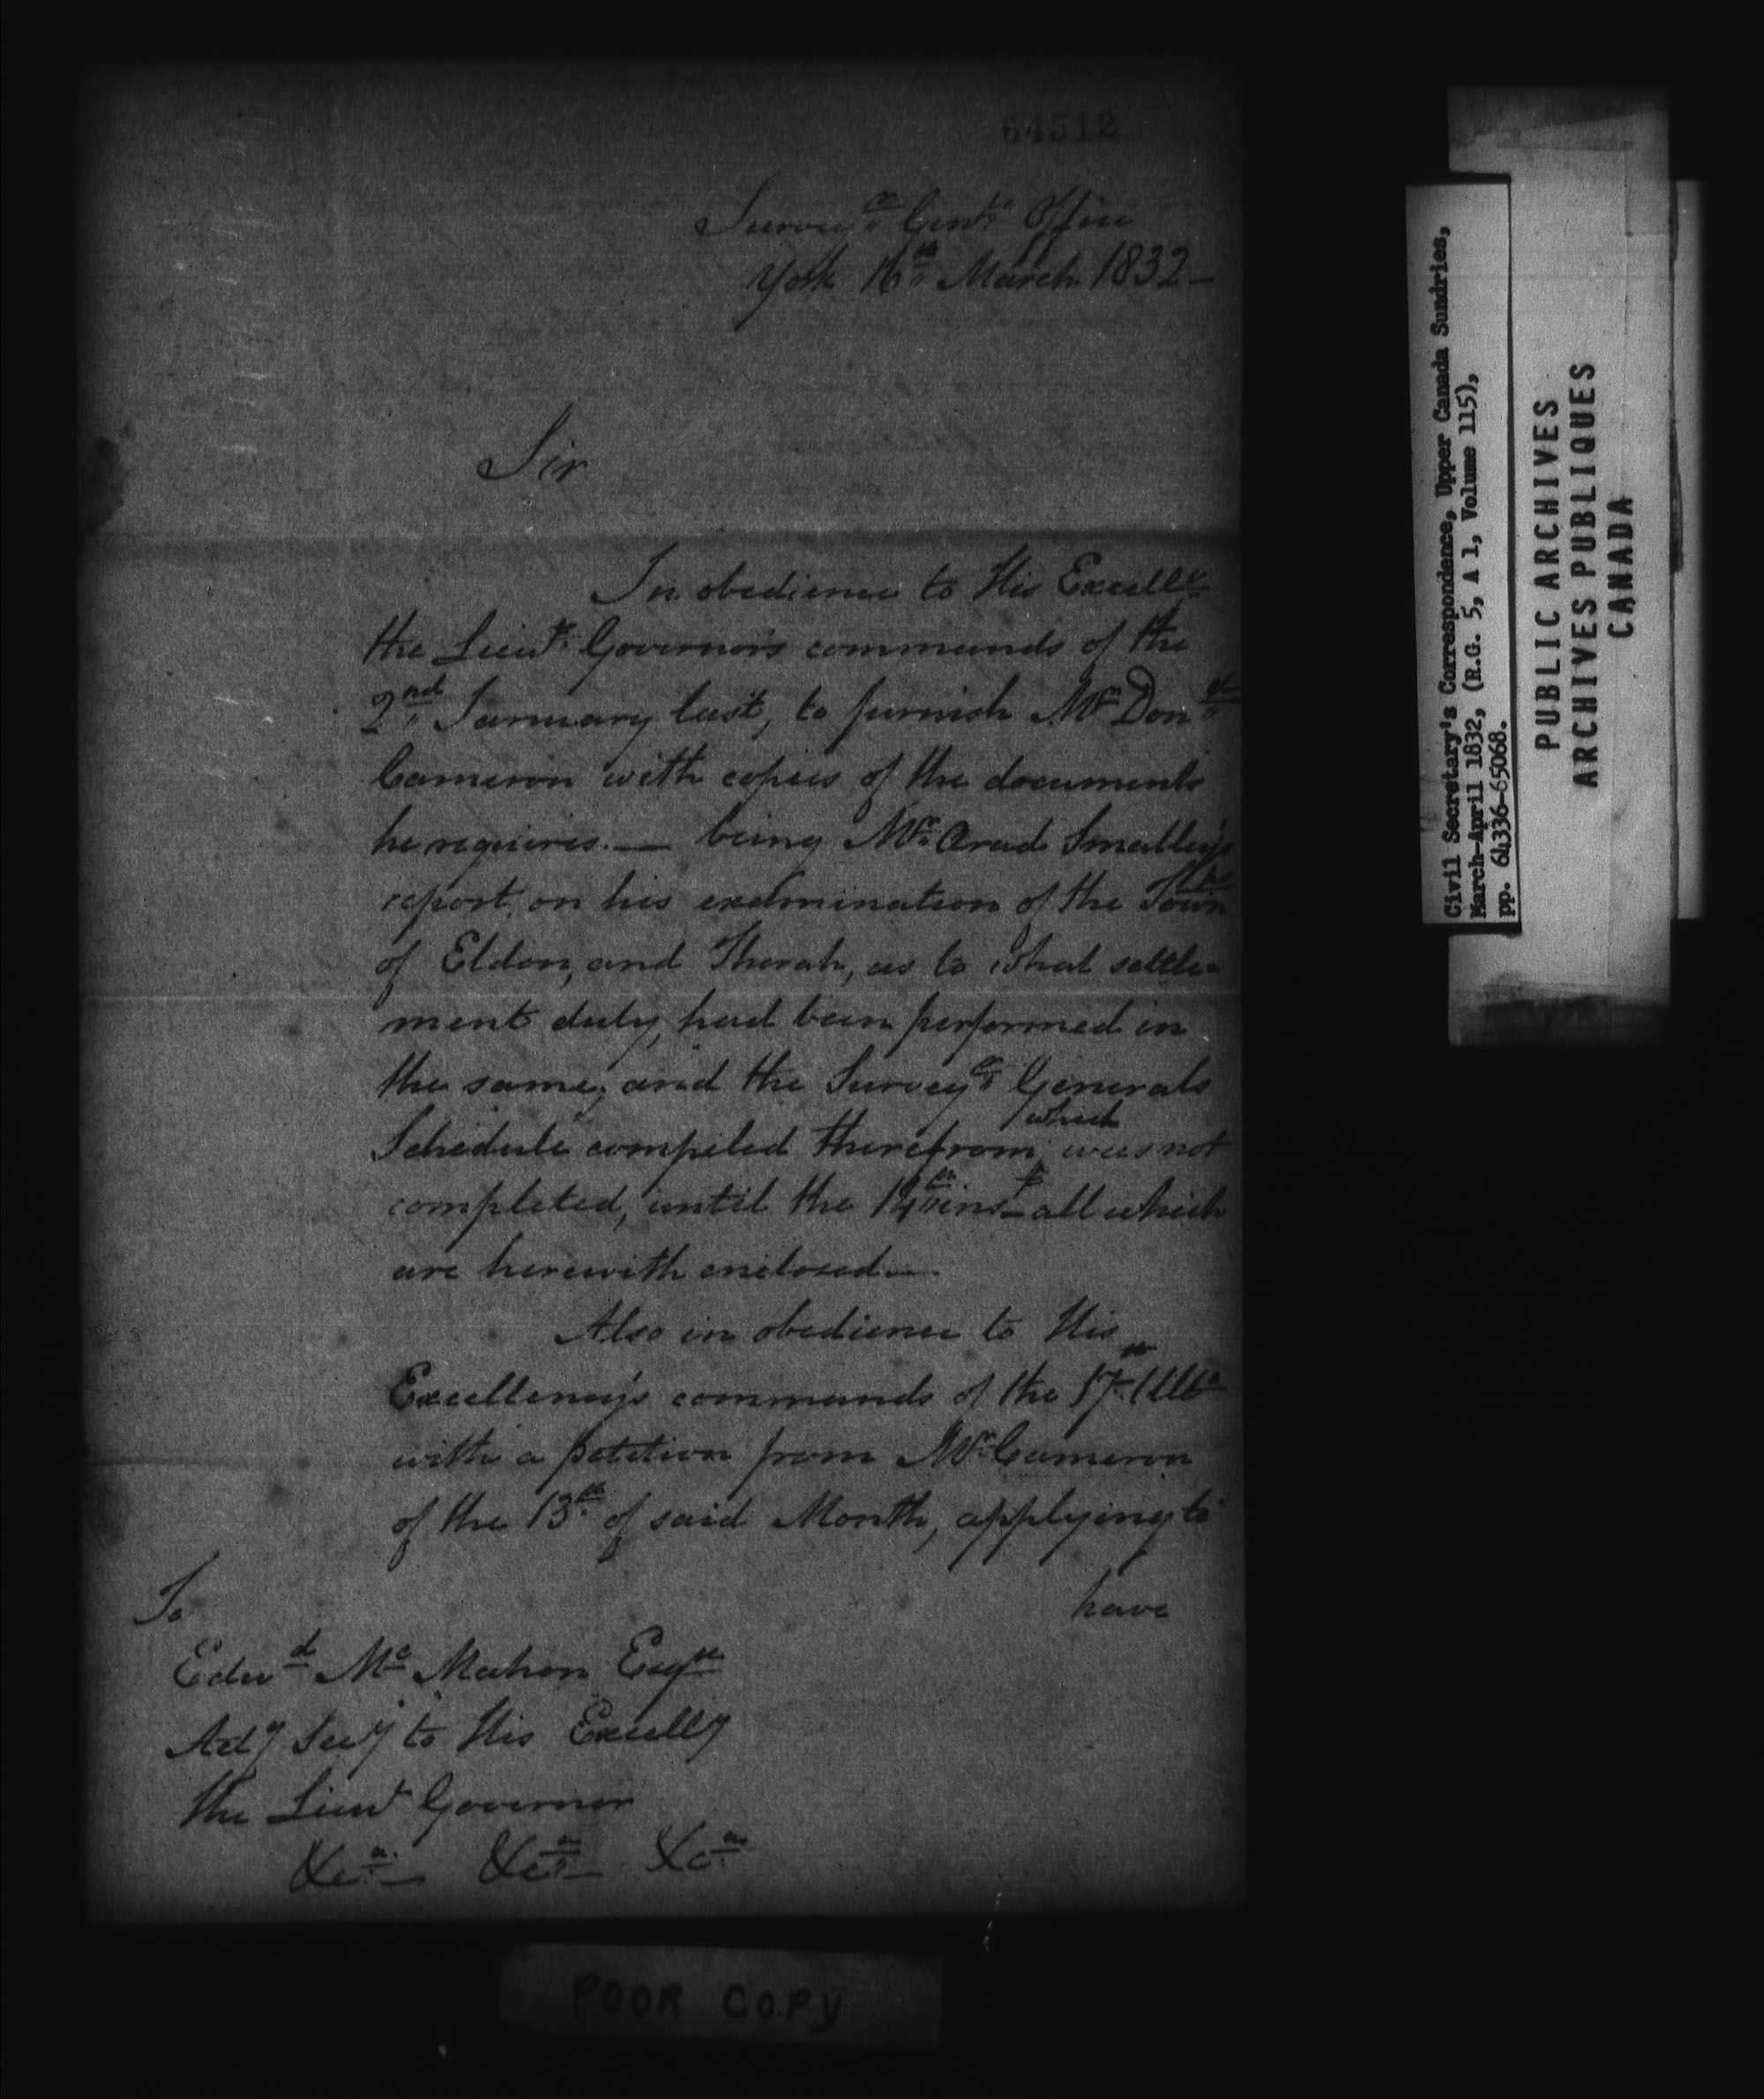 64512
Survey.or Gen.ls Office
York 16th March 1832 —
Sir
In obedience to His Excell.y
the Lieut. Governor's commands of the
2nd January last, to furnish Mr. Don.d
Cameron with copies of the documents
he requires. — being Mr. Arad Smalley's
report, on his examination of the Town.ps
of Eldon, and Thorah, as to what settle-
ment duty, had been performed in
the same, and the Survey.or Generals
Schedule compiled therefrom, which was not
completed, until the 14th inst — all which
are herewith enclosed —.
Also in obedience to His
Excellency's commands of the 17th Ulto
with a petition from Mr. Cameron
of the 13th of said Month, applying to
have
To
Edwd Mc Mahon Esqre
Actg Secy to His Excelly
the Lieut Governor
&c.a — &c.a — &c.a
POOR COPY
Civil Secretary's Correspondence, Upper Canada Sundries,
March-April 1832, (R.G. 5, A 1, Volume 115),
pp. 64336-65068.
PUBLIC ARCHIVES
ARCHIVES PUBLIQUES
CANADA